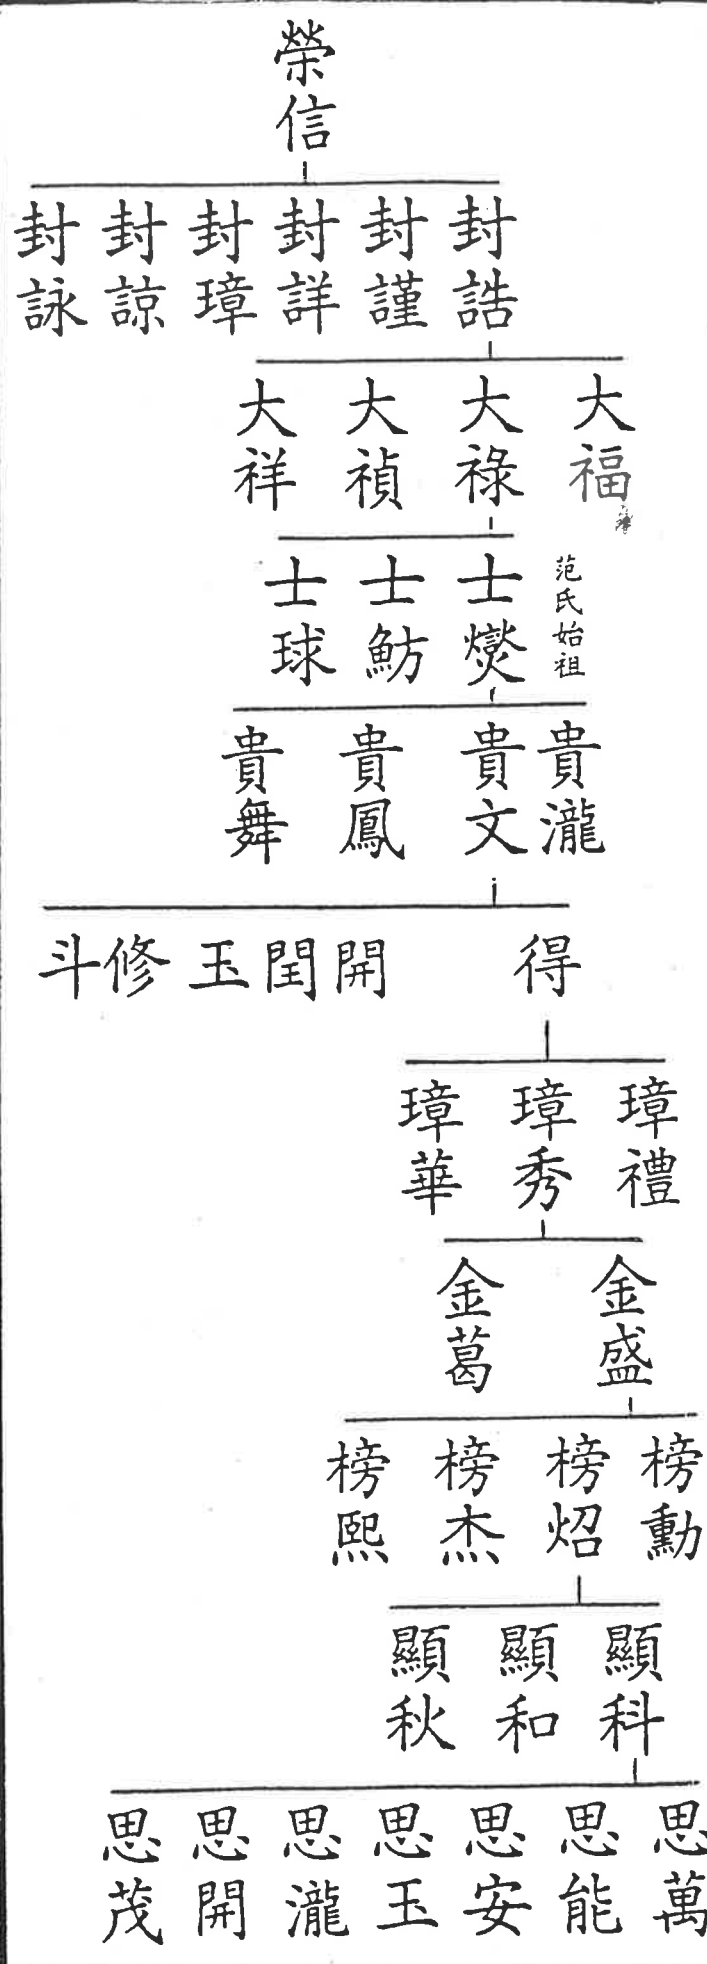 榮信
封誥 封謹 封詳 封璋 封諒 封詠
大福 大祿 大禎 大祥
范氏始祖
士爕 士魴 士球
貴瀧 貴文 貴鳳 貴舞
得 開 閏 玉 修 斗
璋禮 璋秀 璋華
金盛 金葛
榜勳 榜炤 榜杰 榜熙
顯科 顯和 顯秋
思萬 思能 思安 思玉 思瀧 思開 思茂